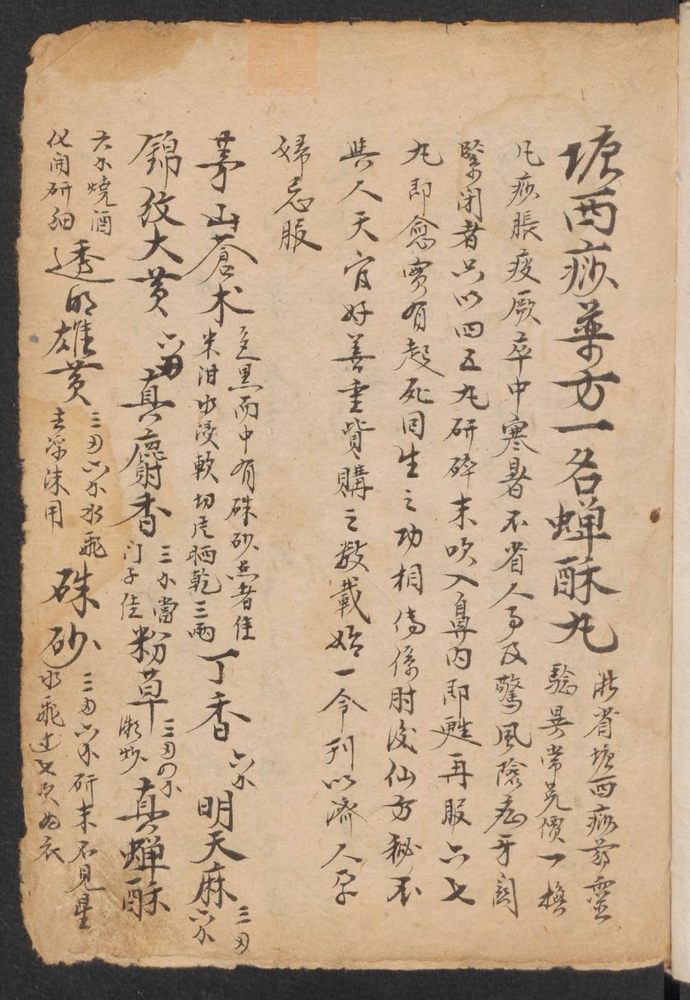 塘西痧葯方一名蟬酥丸 浙省塘西痧葯靈
驗異常兑價一換
凡痧脹疫厥卒中寒暑不省人事及驚風險症牙関
緊闭者只以四五丸研碎末吹入鼻内即甦再服六七
丸即愈實有起死回生之功相傳係肘後仙方秘不
與人天官好善重貲購之数載始一合刊以濟人孕
婦忌服
茅山蒼术 色黒而中有硃砂点者佳
米泔水浸軟切片晒乾三兩 丁香 六分 明天麻 三刄
六分
錦紋大黄 六刄 真麝香 三分當
门子佳 粉草 三刄四分
微炒 真蟬酥
六分燒酒
化開研細 透明雄黄 三刄六分水飛
去浮沫用 硃砂 三刄六分研末不見星
水飛過七次為衣